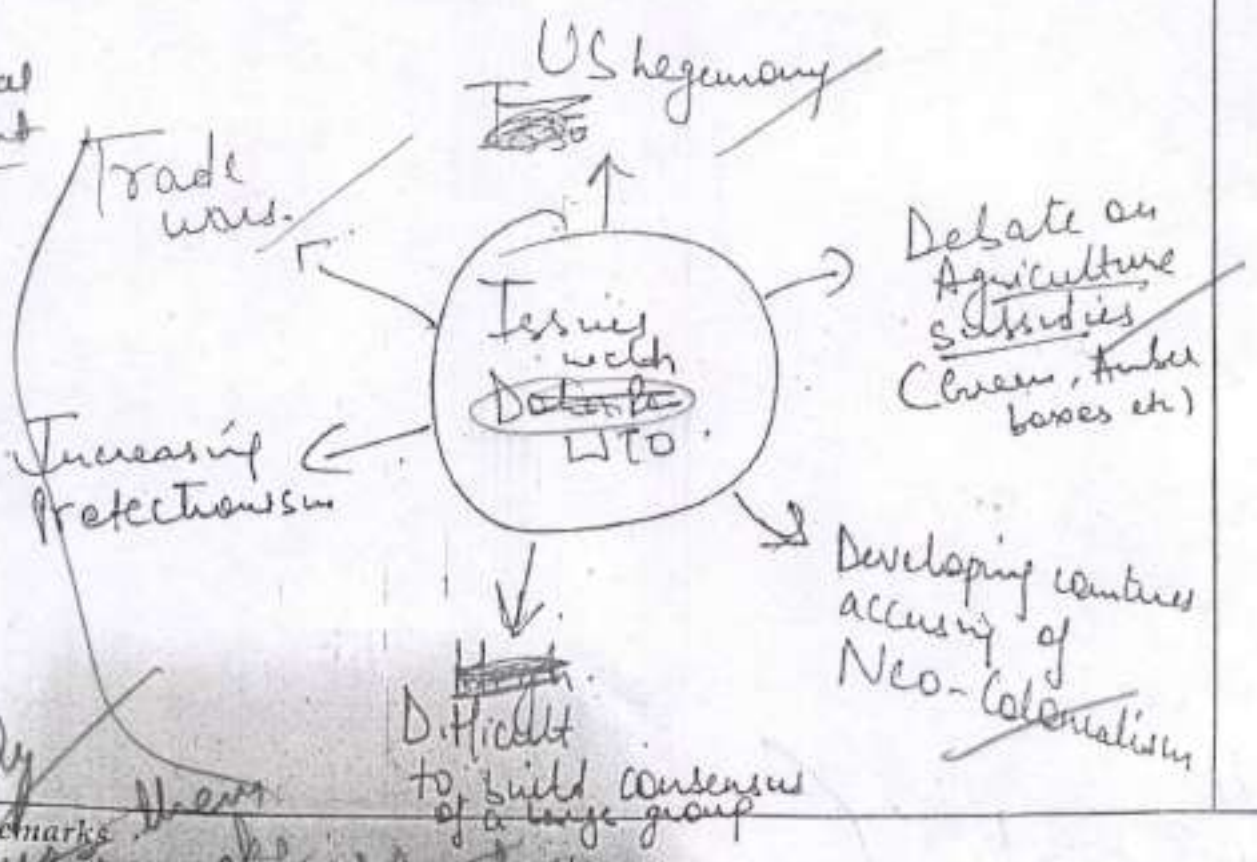 US hegemony
Trade
wars.
Issues
with
WTO.
Debate on
Agriculture
subsidies
(Green, Amber
boxes etc)
Increasing
protectionism
Developing countries
accusing of
Neo-Colonialism
Difficult
to build consensus
of a large group